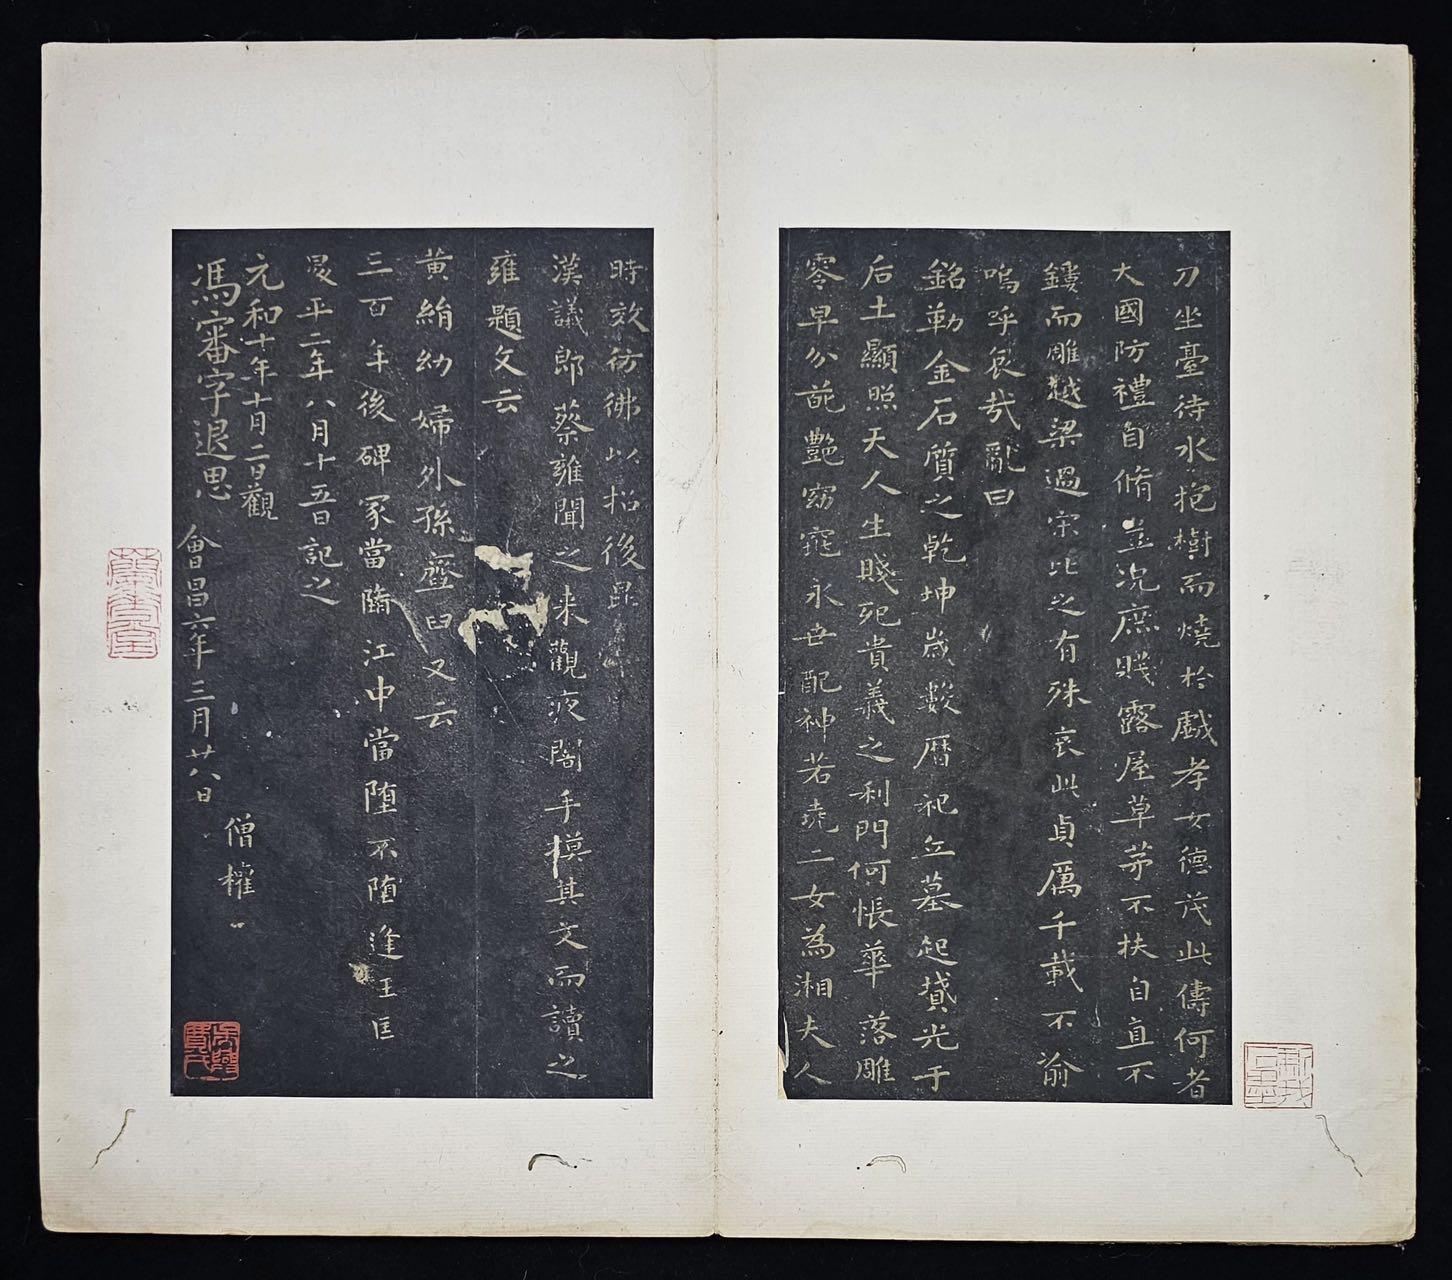 刀坐臺待水抱樹而燒於戲孝女德茂此儔何者
大國防禮自脩豈况庶賤露屋草茅不扶自直不
鏤而雕越梁過宋比之有殊哀此貞厲千載不渝
嗚呼哀哉亂曰
銘勒金石質之乾坤歲數曆祀立墓起墳光于
后土顯照天人生賤死貴義之利門何悵華落雕
零早分葩艷窈窕永世配神若堯二女為湘夫人
時效彷彿以招後昆
漢議郎蔡雍聞之来觀夜闇手摸其文而讀之
雍題文云
黃絹幼婦外孫齏臼又云
三百年後碑冢當墮江中當墮不墮逢王匡
昇平二年八月十五日記之
元和十年十月二日觀
馮審字退思
會昌六年三月廿八日
僧權